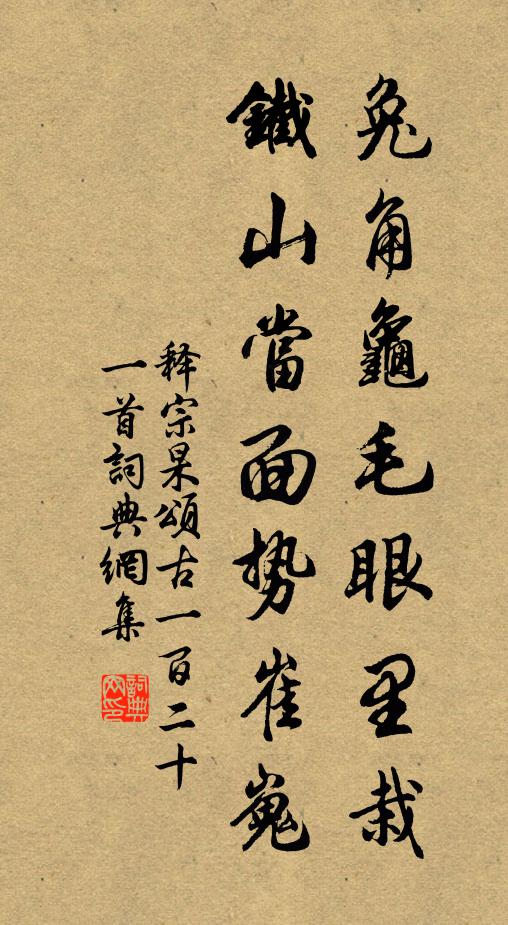 兔角龜毛眼里栽
鐵山當面势崔嵬
释宗杲頌古一百二十
一首詞典網集